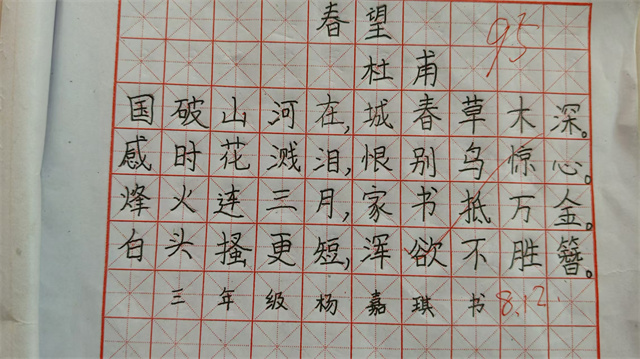 春望 95
杜甫
国破山河在,城春草木深。
感时花溅泪,恨别鸟惊心。
烽火连三月,家书抵万金。
白头搔更短,浑欲不胜簪。
三年级杨嘉琪书 8.12.